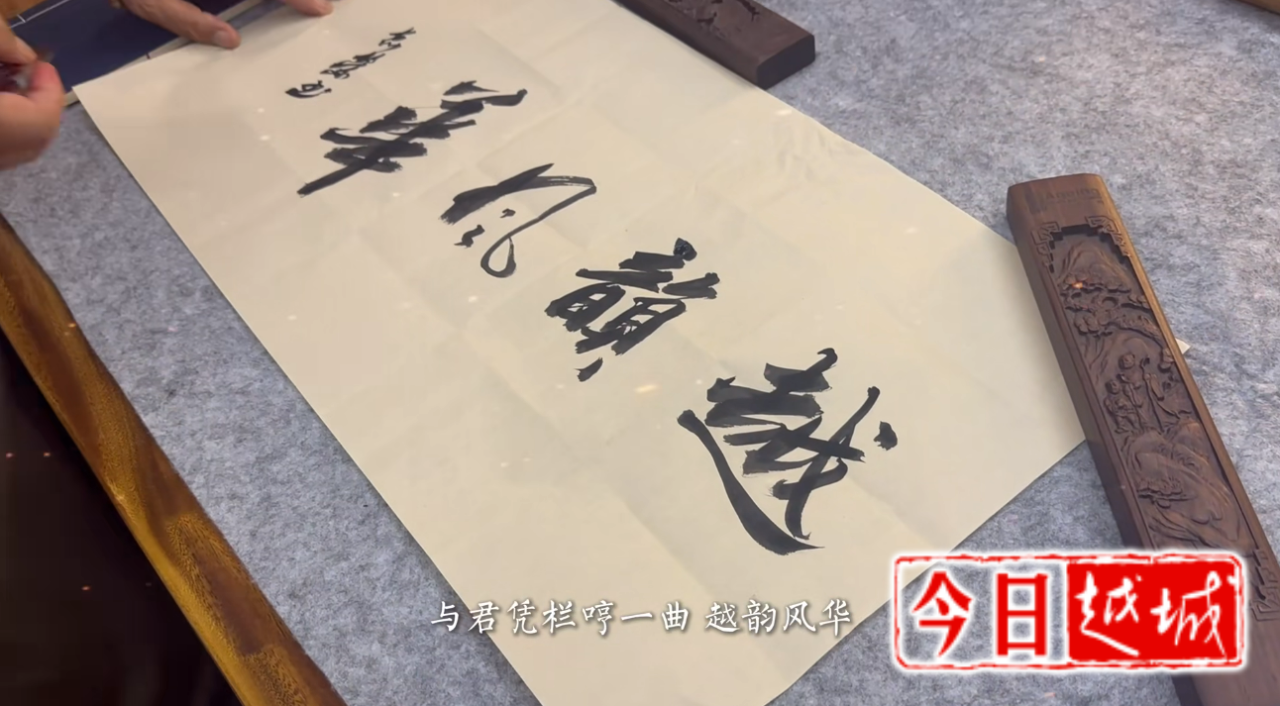 越韻风華
与君凭栏哼一曲 越韵风华
今日越城